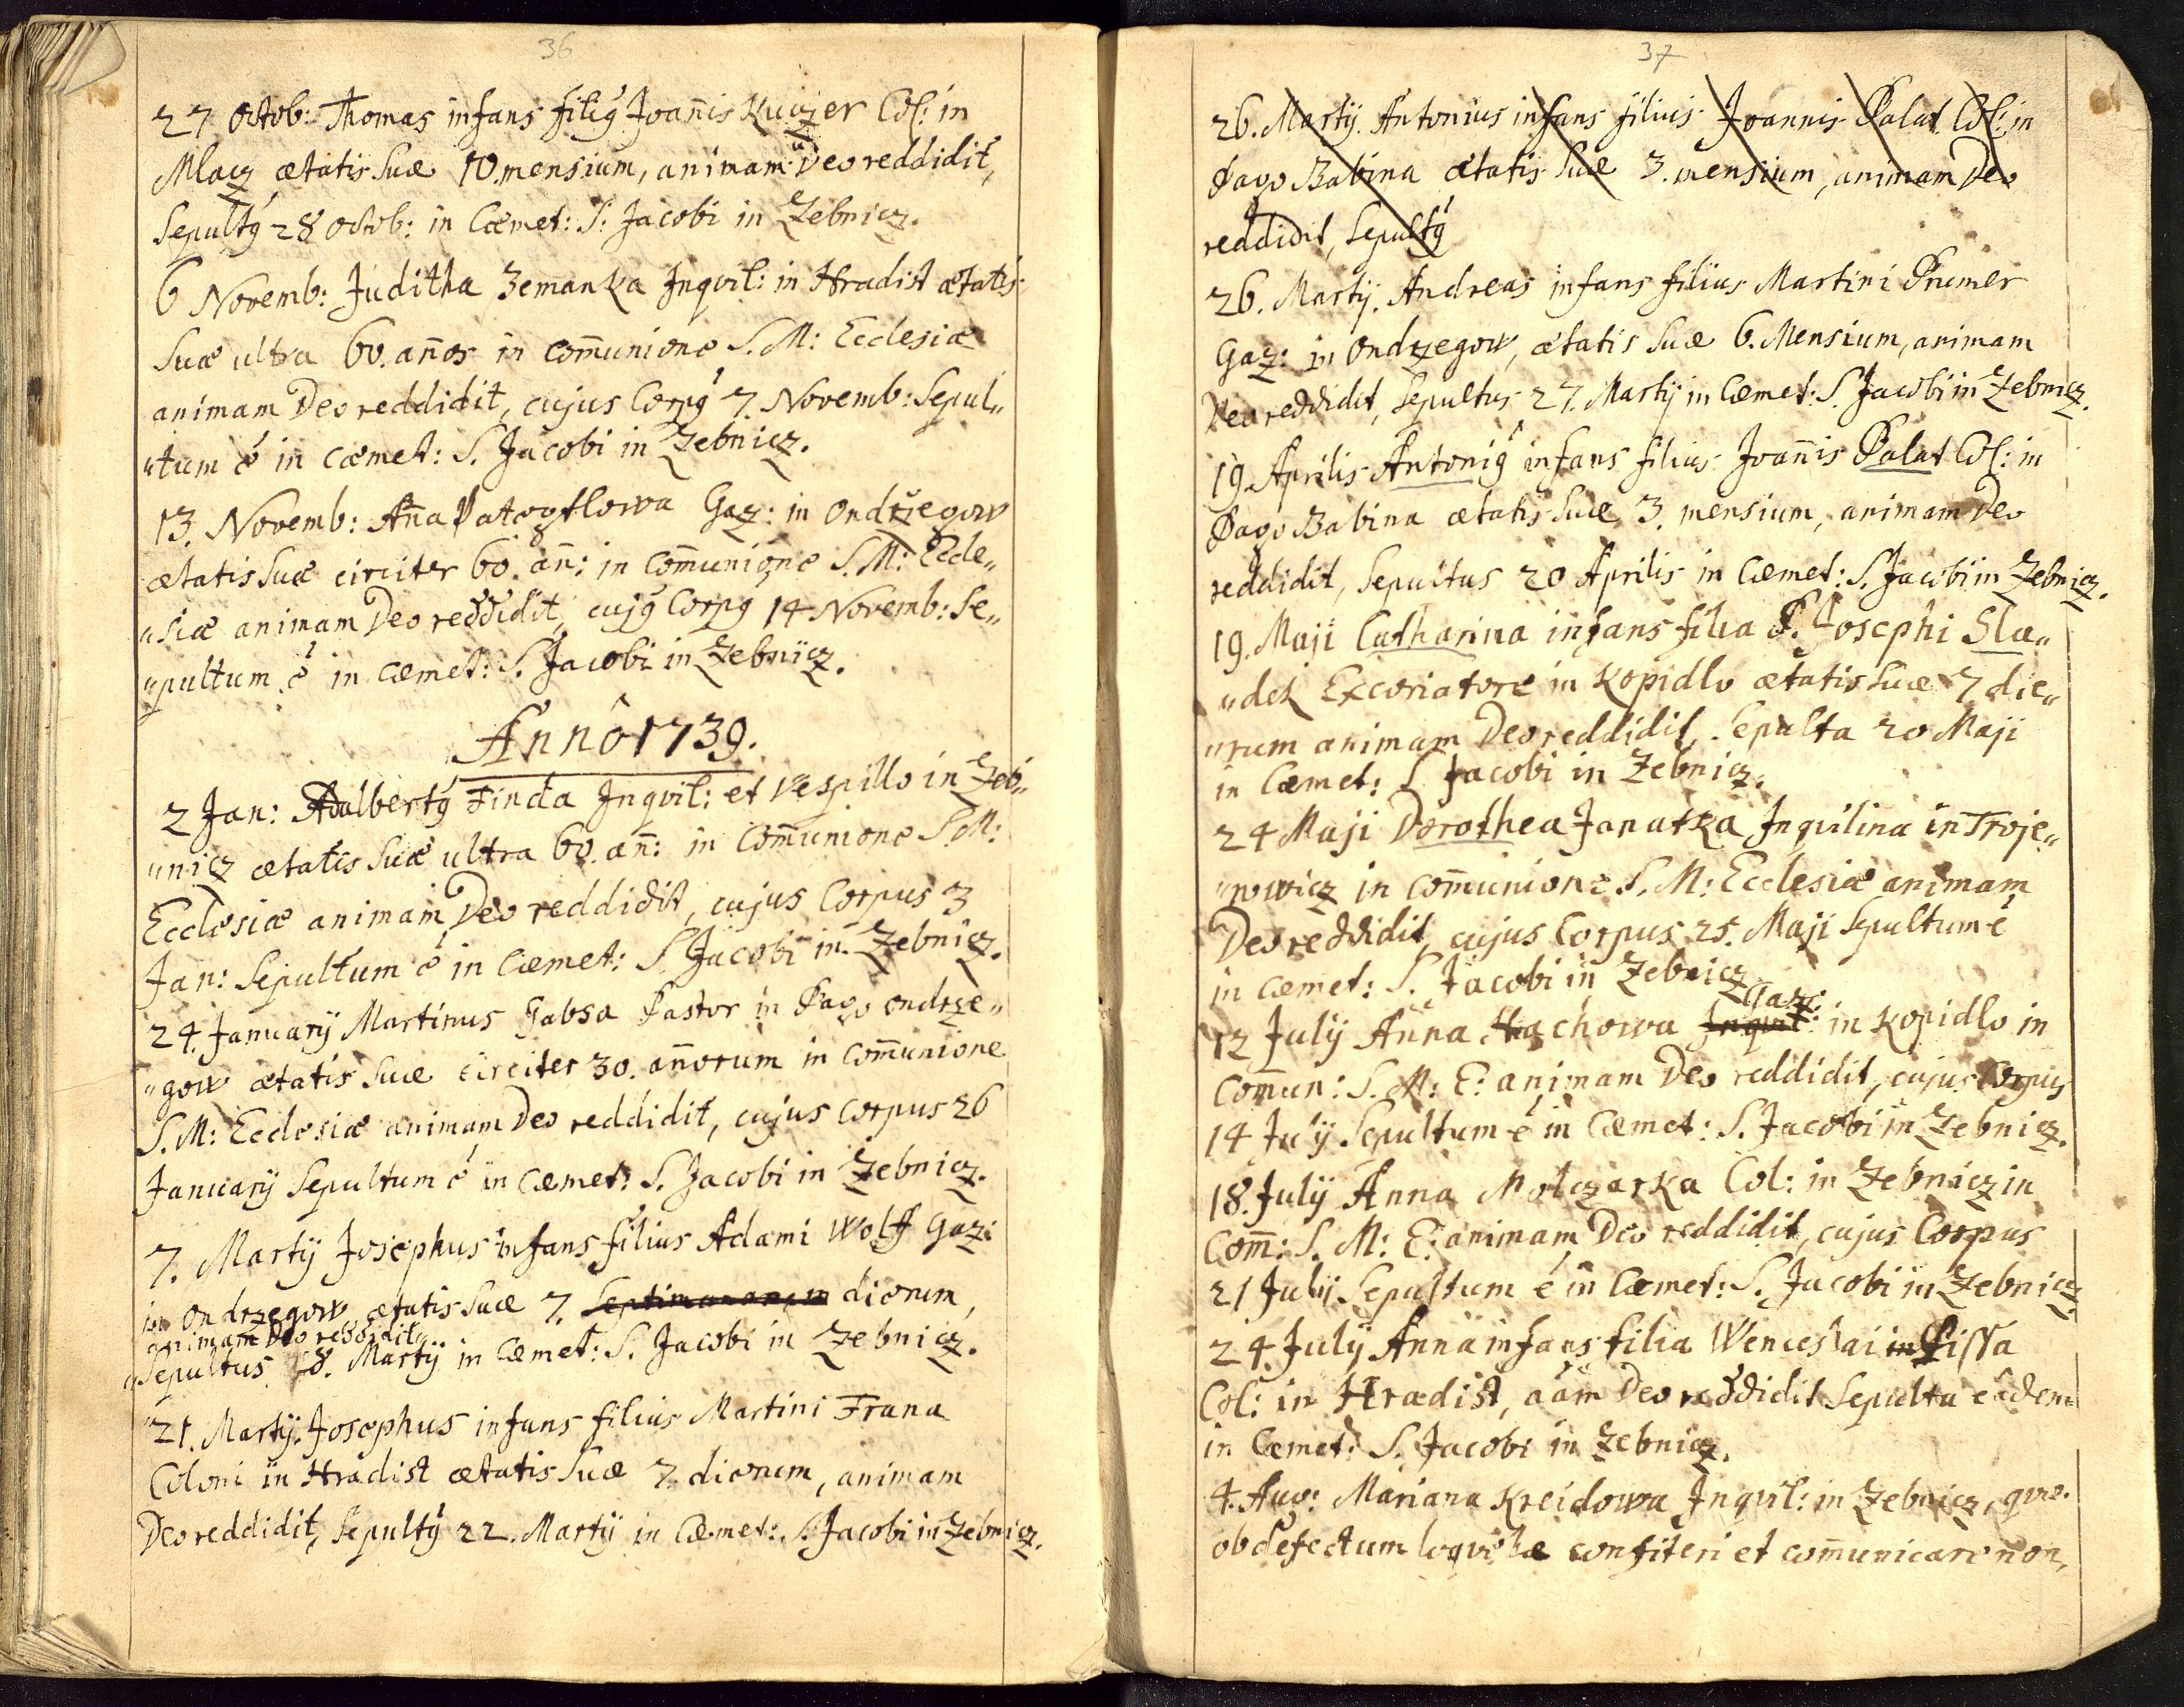 36
27 Octob: Thomas infans filiꝰ Joan̄is Kuczer Col: in
Mlacz ætatis suæ 10. mensium, animam Deo reddidit,
Sepultꝰ 28 Octob: in Cæmet: S: Jacobi in Zebnicz.
6 Novemb: Juditha Zemanka Inqvil: in Hradist ætatis
suæ ultra 60. an̄os in com̄unione S. M: Ecclesiæ
animam Deo reddidit, cujus Corpꝰ 7. Novemb: Sepul„
„tum é in cæmet: S. Jacobi in Zebnicz.
13. Novemb: An̄a Gaz: in Ondrzegow
ætatis suæ circiter 60. an̄: in Com̄unione S. M: Eccle„
„siæ animam Deo reddidit, cujꝰ Corpꝰ 14 Novemb: Se„
„pultum é in cæmet: S. Jacobi in Zebnicz.
Anno 1739.
2 Jan: Adalbertꝰ Finda Inqvil: et Vespillo in Zeb„
„nicz ætatis suæ ultra 60. an̄: in Com̄unione S. M:
Ecclesiæ animam Deo reddidit, cujus Corpus 3
Jan: Sepultum é in Cæmet: S. Jacobi in Zebnicz.
24. January Martinus Gabsa Pastor in Pago Ondrze„
„gow ætatis suæ circiter 30. an̄orum in Com̄unione
S. M: Ecclesiæ animam Deo reddidit, cujus Corpus 26
January Sepultum é in Cæmet: S. Jacobi in Zebnicz.
7. Martij Josephus infans filius Adami Wolf Gaz:
in Ondrzegow ætatis suæ 7. Septimanarum dierum,
animam Deo reddidit
„Sepultus 8. Martij in Cæmet: S. Jacobi in Zebnicz.
21. Martij. Josephus infans filius Martini Frana
Coloni in Hradist ætatis suæ 7. dierum, animam
Deo reddidit, Sepultꝰ 22. Martij in Cæmet: S. Jacobi in Zebnicz.
37
26. Martij. Antonius infans filius Joannis Palat Col: in
Pago Babina ætatis suæ 3. mensium, animam Deo
reddidit, Sepultꝰ
26. Martij. Andreas infans filius Martini Prumer
Gaz: in Ondrzegow, ætatis suæ 6. Mensium, animam
Deo reddidit, Sepultus 27. Martij in Cæmet: S. Jacobi in Zebnicz.
19. Aprilis Antoniꝰ infans filius Joan̄is Palat Col: in
Pago Babina ætatis suæ 3. mensium, animam Deo
reddidit, Sepultus 20 Aprilis in Cæmet: S. Jacobi in Zebnicz.
19. Maji Catharina infans filia P. Josephi Sla„
„dek Excoriatore in Kopidlo ætatis suæ 7 die„
„rum animam Deo reddidit, Sepulta 20 Maji
in Cæmet: S. Jacobi in Zebnicz.
24 Maji Dorothea Janatka Inqvilina in Troje„
„nowicz in com̄unione S. M: Ecclesiæ animam
Deo reddidit, cujus Corpus 25. Maji Sepultum é
in cæmet: S. Jacobi in Zebnicz
Gaz:
12 July An̄a Hachowa Inqvil: in Kopidlo in
Com̄un: S. M: E: animam Deo reddidit, cujus Corpus
14 July Sepultum é in Cæmet: S. Jacobi in Zebnicz.
18. July Anna Molczarka Col: in Zebnicz in
Com̄: S. M: E: animam Deo reddidit, cujus Corpus
21 July Sepultum é in Cæmet: S. Jacobi in Zebnicz
24. July Anna infans filia Wenceslai in Pissa
Col: in Hradist, aām Deo reddidit Sepulta eadem
in Cæmet: S. Jacobi in Zebnicz.
4. Aug: Mariana Kreidowa Inqvil: in Zebnicz, qvæ.
ob defectum loqvelæ confiteri et com̄unicare non,